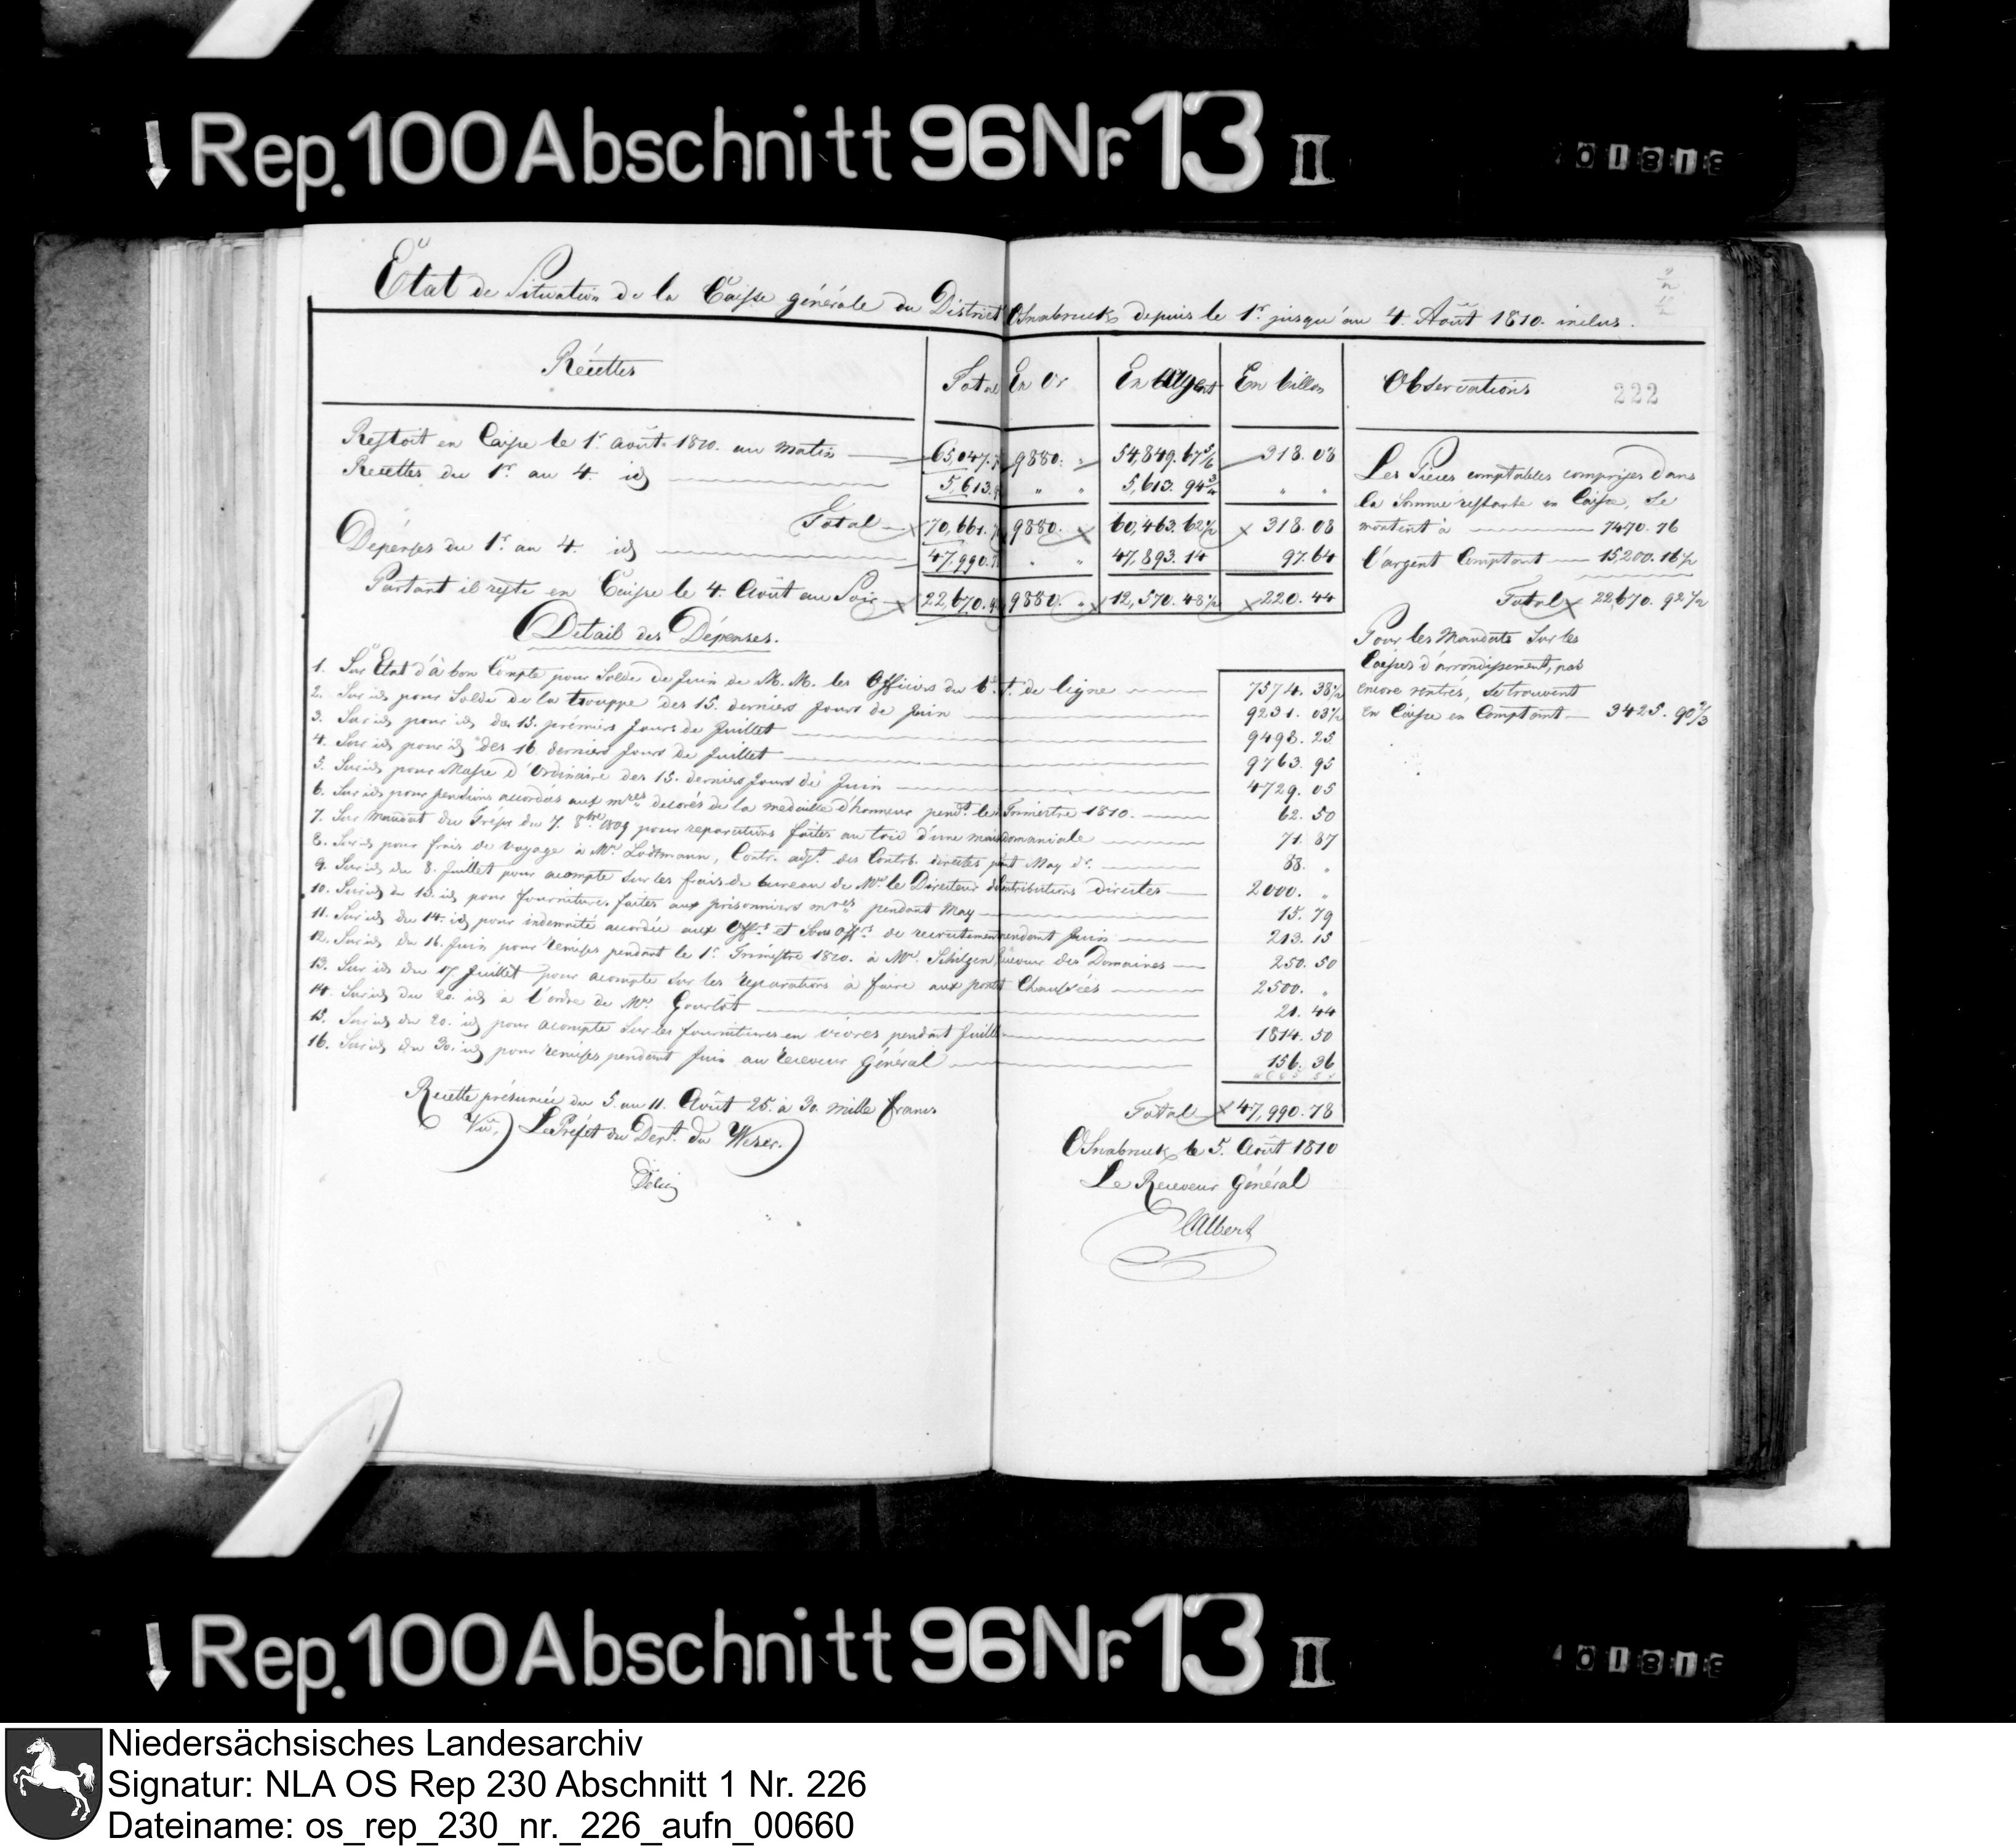 Rep. 100 Abschnitt 96 Nr. 13 II
Etat de Situation de la Caisse générale du District Osnabruck depuis le 1r. jusqu'au 4. Août 1810. inclus.
Récettes Total En Or En Argent En billon Observations 222
Restoit en Caisse le 1r. août. 1810. au matin 65,047. 9880. " 54,849. 67 5/6 318. 08
Recettes du 1r. au 4. id 5,613. " " 5,613. 94 3/4 " "
Total 70,661. 9880. 60,463. 62 1/2 318. 08
Dépenses du 1r. au 4. id 47,990. " " 47,893. 14 97. 64
Partant il reste en Caisse le 4. Août au Soir 22,670. 9880. " 12,570. 48 1/2 220. 44
Les Pièces comptables comprises dans
la Somme restante en Caisse, Se
montent à 7470. 76
l'argent Comptant 15,200. 16 1/2
Total 22,670. 92 1/2
Pour les Mandats Sur les
Caisses d'arrondissement, pas
encore rentrés, Se trouvent
en Caisse en Comptant 3425. 90 2/3
Détail des Dépenses.
1. Sur Etat d'à bon Compte pour Solde de Juin de M. M. les Officiers du 6e. r. de ligne 7574. 38 1/2
2. Sur id pour Solde de la trouppe des 15. derniers jours de Juin 9231. 03 1/2
3. Sur id pour id des 15. prémiers jours de Juillet 9498. 25
4. Sur id pour id des 16 derniers jours de Juillet 9763. 95
5. Sur id pour Masse d'Ordinaire des 15. derniers jours de Juin 4729. 05
6. Sur id pour pensions accordées aux mres decorés de la medaille d'honneur pendt. le Trimestre 1810. 62. 50
7. Sur Mandat du Trésor du 7. 8bre 1809 pour reparations faites au toit d'une maison domaniale 71. 87
8. Sur id pour frais de voyage à Mr. Lodtmann, Contr. adjt. des Contrib. directes pdt May dr. 88. "
9. Sur id du 8. Juillet pour acompte Sur les frais de bureau de Mr. le Directeur des Contributions directes 2000. "
10. Sur id du 13. id pour fournitures faites aux prisonniers mres pendant May 15. 79
11. Sur id du 14. id pour indemnité accordée aux Offrs et Sous offrs de recrutement pendant Juin 213. 15
12. Sur id du 16. Juin pour remises pendant le 1r. Trimestre 1810. à Mr. Schilgen Receveur des Domaines 250. 50
13. Sur id du 17 Juillet pour acompte Sur les reparations à faire aux ponts et Chaussées 2500. "
14. Sur id du 20. id à l'ordre de Mr. Gourlot 21. 44
15. Sur id du 20. id pour acompte Sur les fournitures en vivres pendant Juillet 1814. 50
16. Sur id du 30. id pour remises pendant Juin au Receveur Général 156. 36
Recette présumée du 5. au 11. Août 25. à 30. mille francs
Total 47,990. 78
Vu, Le Préfet du Dept. du Weser.
Osnabruck le 5. Août 1810
Le Receveur Général
Delius
Albert
Rep. 100 Abschnitt 96 Nr. 13 II
Niedersächsisches Landesarchiv
Signatur: NLA OS Rep 230 Abschnitt 1 Nr. 226
Dateiname: os_rep_230_nr._226_aufn_00660